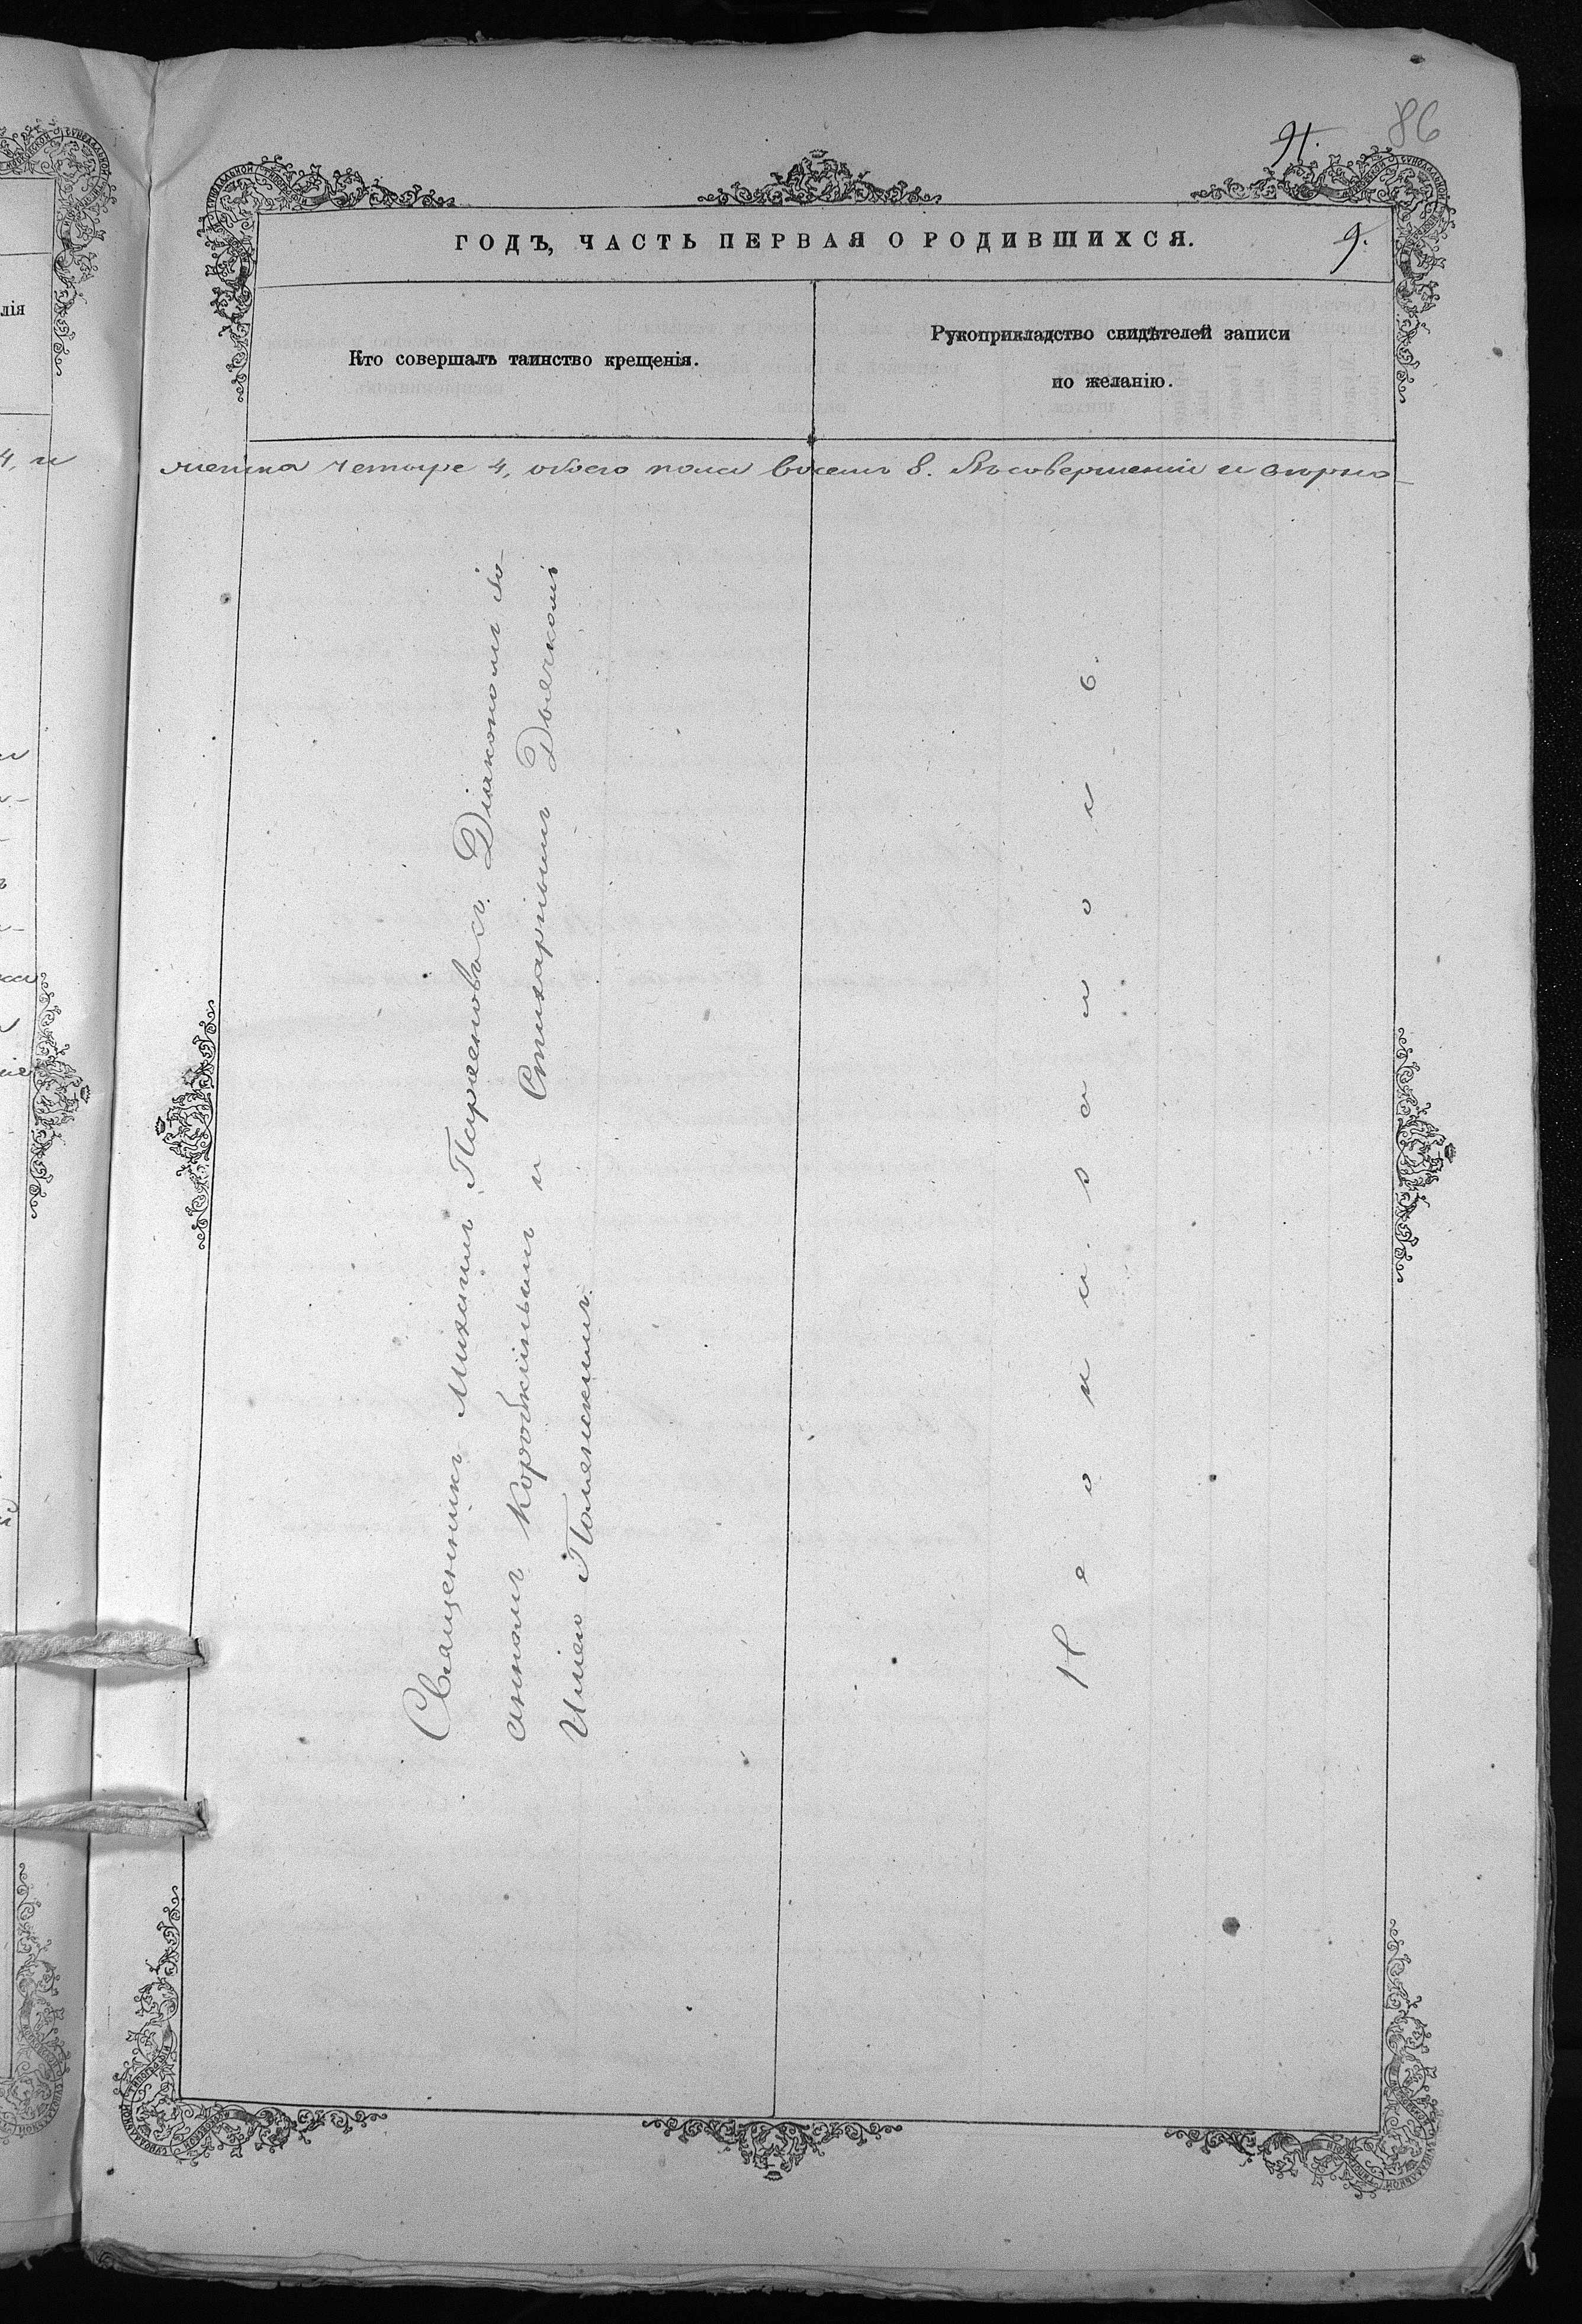 86
91.
ГОДЪ, ЧАСТЬ ПЕРВАЯ О РОДИВШИХСЯ.
9.
Кто совершалъ таинство крещенія.
Рукоприкладство свидѣтелей записи
по желанію.
лія
4, и
женска четыре 4, обоего пола восемь 8. Въ совершеніи и вѣрно-
Священникъ Михаилъ Парѳеновъ съ Діакономъ Іо-
анномъ Коробкинымъ и Стихарнымъ Дьячкомъ
Ильею Полянскимъ.